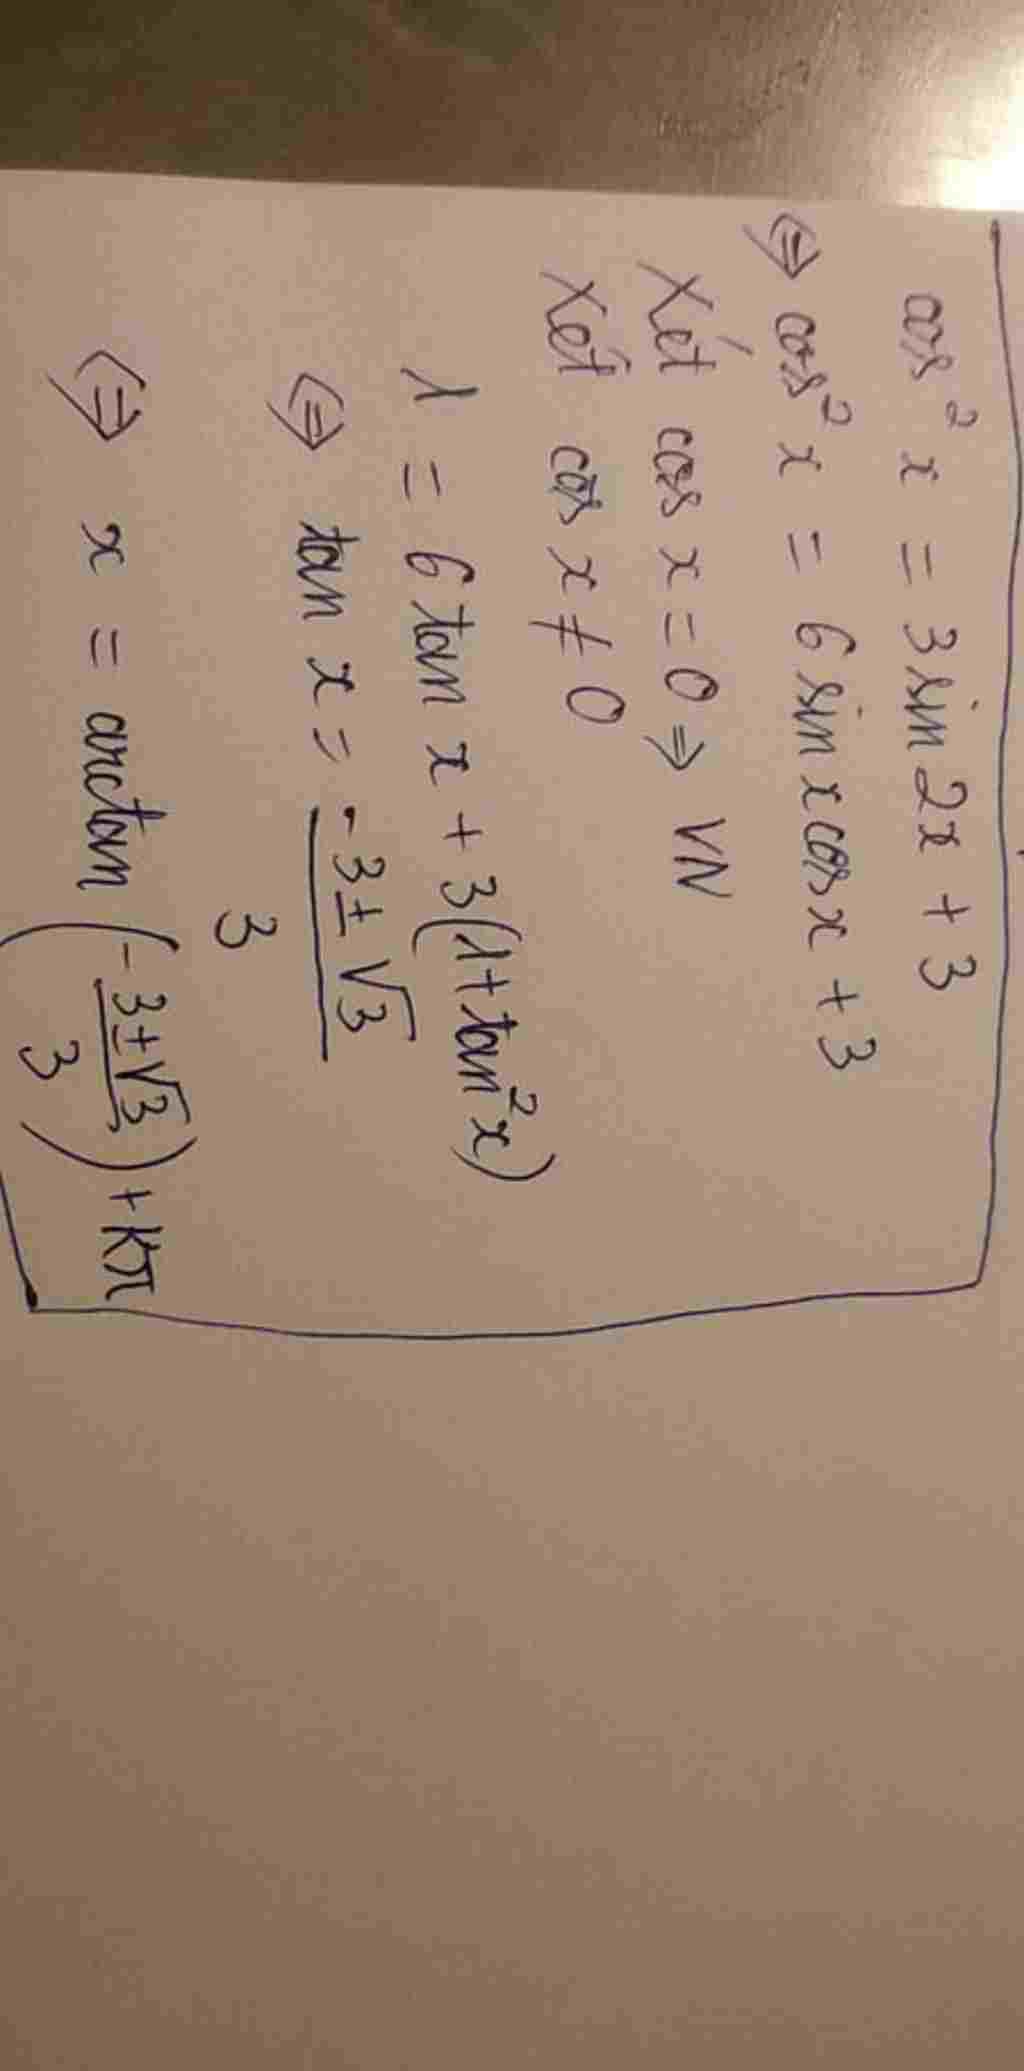 cos²x = 3sin2x + 3
⇔ cos²x = 6sinxcosx + 3
Xét cos x = 0 ⇒ VN
Xét cos x ≠ 0
1 = 6tan x + 3(1+tan²x)
⇔ tan x = (-3±√3)/3
⇔ x = arctan((-3±√3)/3) + kπ